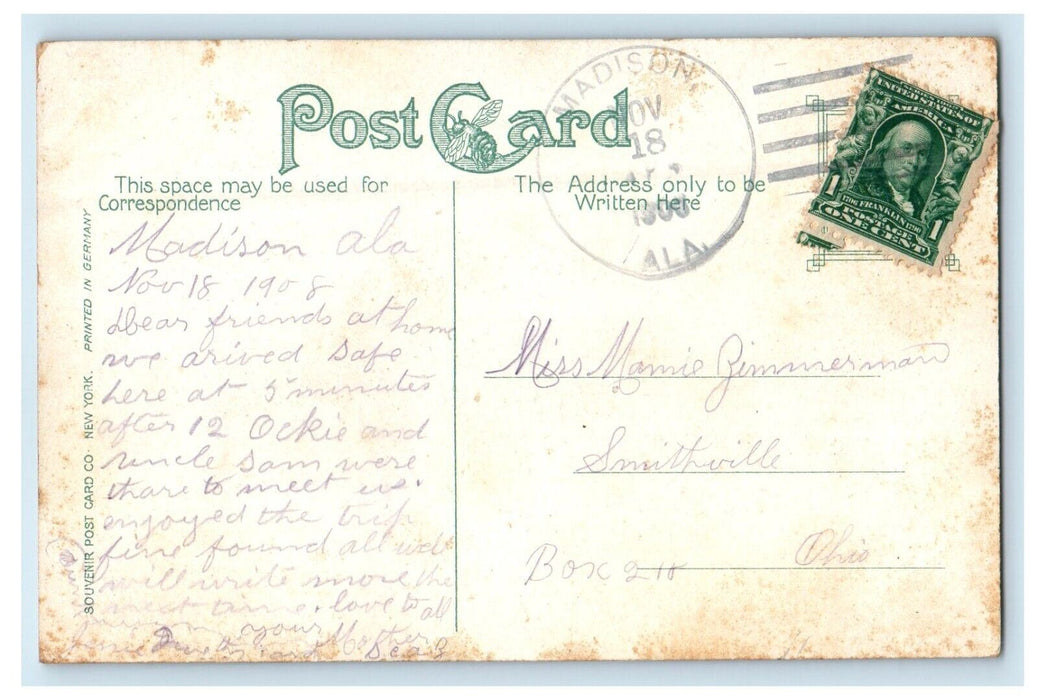 Post Card
This space may be used for
Correspondence
The Address only to be
Written Here
MADISON,
NOV
18
1908
ALA.
UNITED STATES OF
AMERICA
1 1
1706 FRANKLIN 1790
POSTAGE
ONE CENT
SOUVENIR POST CARD CO. NEW YORK. PRINTED IN GERMANY
Madison Ala
Nov 18 1908
Dear friends at home
we arived safe
here at 5 minutes
after 12 Ockie and
uncle Sam were
thare to meet us.
enjoyed the trip
fine found all well
will write more the
next time. love to all
your Mother
Miss Mamie Zimmerman
Smithville
Ohio
Box 210